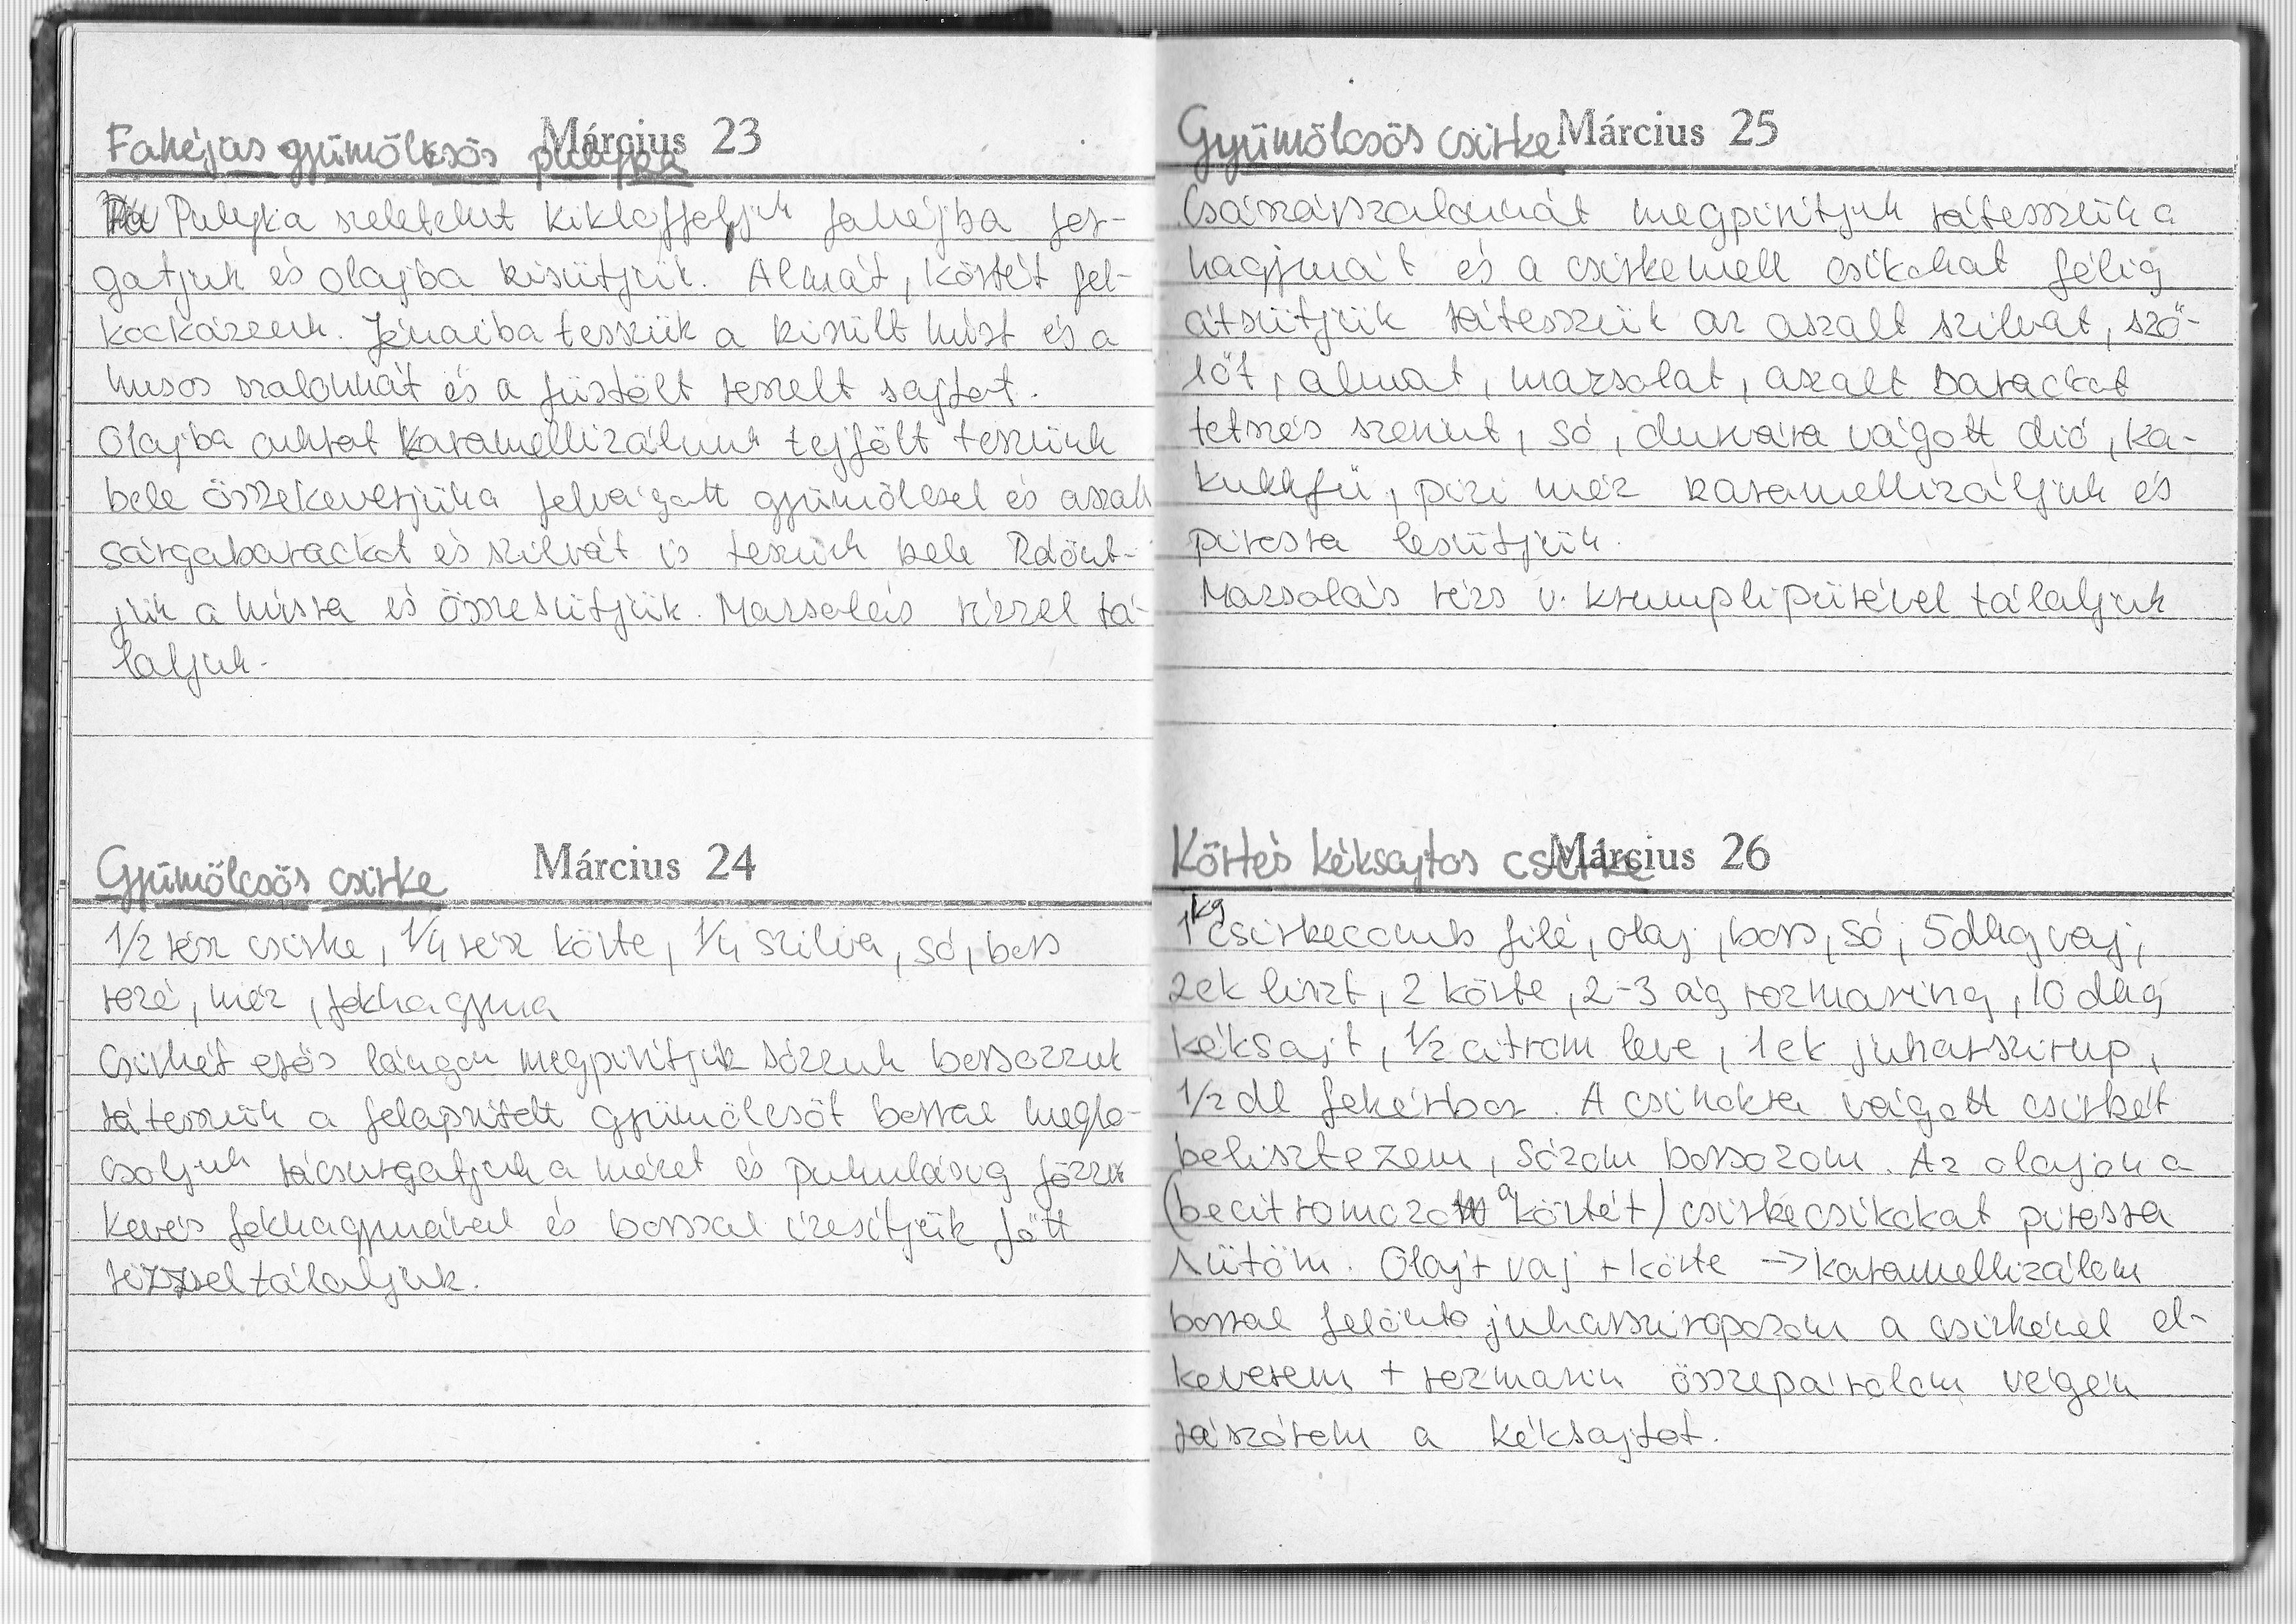 Március 23
Fahéjas gyümölcsös pulyka
Pulyka szeleteket kiklopfoljuk fahéjba for-
gatjuk és olajba kisütjük. Almát, körtét fel-
kockázzuk. Jénaiba tesszük a kisült húst és a
husos szalonnát és a füstölt reszelt sajtot.
Olajba cukrot karamellizálunk tejfölt teszünk
bele összekeverjük a felvágott gyümölcsel és aszalt
sárgabarackot és szilvát is teszünk bele Ráönt-
jük a húsra és összesütjük. Mazsolás rizzsel tá-
laljuk.
Március 24
Gyümölcsös csirke
1/2 rész csirke, 1/4 rész körte, 1/4 szilva, só, bors
rozé, méz, fokhagyma
Csirkét erős lángon megpirítjuk sózzuk borsozzuk
rátesszük a felaprított gyümölcsöt borral meglo-
csoljuk rácsurgatjuk a mézet és puhulásig főzzük
kevés fokhagymával és borssal ízesítjük főtt
rizzsel tálaljuk.
Március 25
Gyümölcsös csirke
Császárszalonnát megpirítjuk rátesszük a
hagymát és a csirkemell csíkokat félig
átsütjük rátesszük az aszalt szilvát, sző-
lőt, almát, mazsolát, aszalt barackot
tetszés szerint, só, durvára vágott dió, ka-
kukkfű, pici méz karamellizáljuk és
pirosra lesütjük.
Mazsolás rizs v. krumplipürével tálaljuk
Március 26
Körtés kéksajtos csirke
1 kg csirkecomb filé, olaj, bors, só, 5 dkg vaj,
2 ek liszt, 2 körte, 2-3 ág rozmaring, 10 dkg
kéksajt, 1/2 citrom leve, 1 ek juharszirup,
1/2 dl fehérbor. A csíkokra vágott csirkét
belisztezem, sózom borsozom. Az olajon a
(becitromozom a körtét) csirkecsíkokat pirosra
sütöm. Olaj + vaj + körte -> karamellizálom
borral felöntö juharsziropozom a csirkével el-
keverem + rozmarin összepárolom végén
rászórom a kéksajtot.